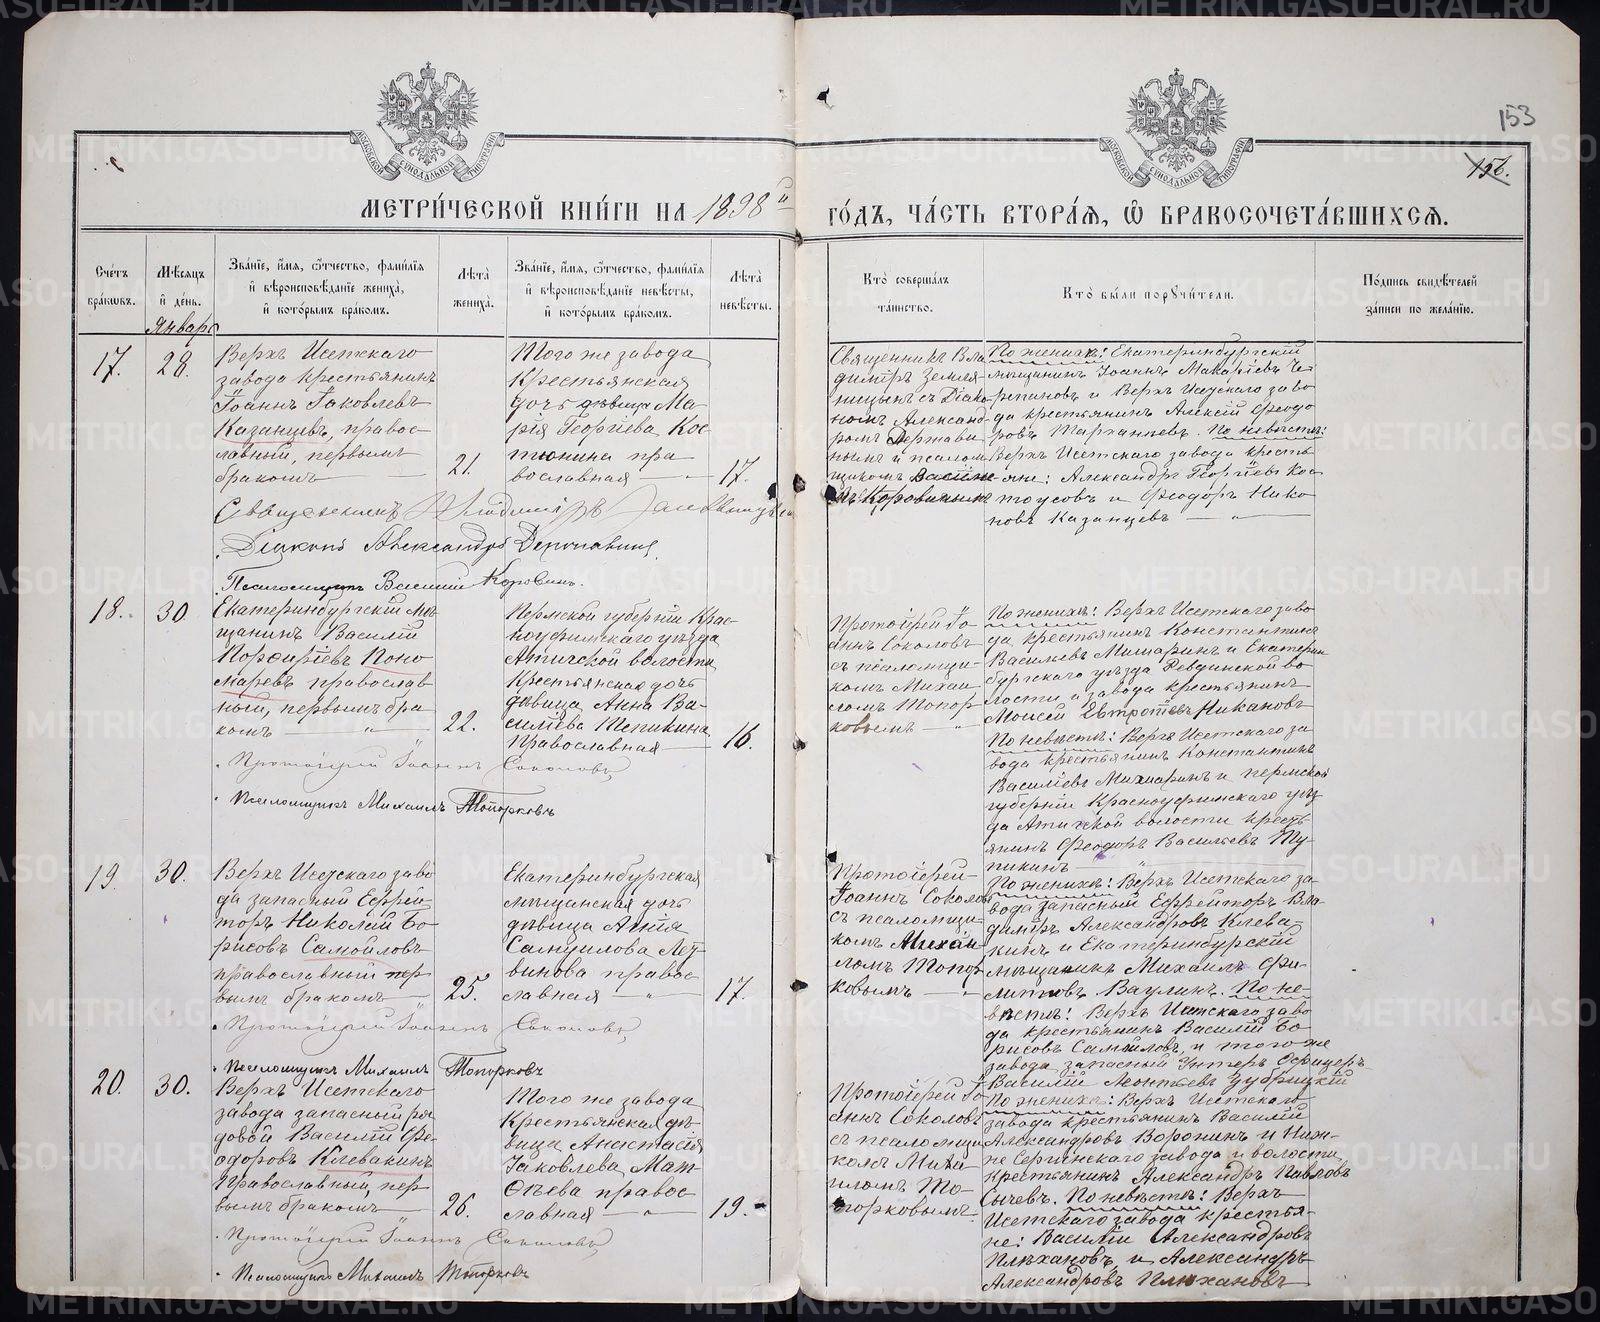 153
156.
МЕТРИЧЕСКОЙ КНИГИ НА 1898й ГОДЪ, ЧАСТЬ ВТОРАЯ, Ѿ БРАКОСОЧЕТАВШИХСЯ.
МОСКОВСКОЙ СУНОДАЛЬНОЙ ТИПОГРАФІИ
МОСКОВСКОЙ СУНОДАЛЬНОЙ ТИПОГРАФІИ
Счетъ браковъ.
Мѣсяцъ и день.
Званіе, имя, ѿчество, фамилія и вѣроисповѣданіе жениха, и которымъ бракомъ.
Лѣта жениха.
Званіе, имя, ѿчество, фамилія и вѣроисповѣданіе невѣсты, и которымъ бракомъ.
Лѣта невѣсты.
Кто совершалъ таинство.
Кто были поручители.
Подпись свидѣтелей записи по желанію.
Январь
17.
28.
Верхъ Исетскаго
завода крестьянинъ
Іоаннъ Іаковлевъ
Казанцевъ, правос-
лавный, первымъ
бракомъ
21.
Того же завода
крестьянская
дочь дѣвица Ма-
рія Георгіева Кос-
тюнина пра-
вославная
17.
Священникъ Вла
димиръ Земля-
ницынъ съ Діако-
номъ Александ-
ромъ Держави-
нымъ и псалом-
щикомъ Василіе-
мъ Коровинымъ
По женихѣ: Екатеринбургскій
мѣщанинъ Іоаннъ Макаріевъ Че-
репановъ и Верхъ Исетскаго заво
да крестьянинъ Алексій Ѳеодо
ровъ Тарханьевъ. По невѣстѣ:
Верхъ Исетскаго завода кресть
яне: Александръ Георгіевъ Кос
тоусовъ и Ѳеодоръ Нико-
новъ Казанцевъ
Священникъ Владиміръ Земляницынъ
Діаконъ Александръ Державинъ
Псаломщикъ Василій Коровинъ.
18.
30.
Екатеринбургскій мѣ-
щанинъ Василій
Порфиріевъ Поно
маревъ православ
ный, первымъ бра
комъ
22.
Пермской губерніи Крас-
ноуфимскаго уѣзда
Атигской волости
крестьянская дочь
дѣвица Анна Ва-
силіева Тепикина
православная
16.
Протоіерей Іо-
аннъ Соколовъ
съ псаломщи-
комъ Михаи
ломъ Топор
ковымъ
По женихѣ: Верхъ Исетскаго заво
да крестьянинъ Константинъ
Васильевъ Мишаринъ и Екатерин
бургскаго уѣзда Ревдинской во
лости и завода крестьянинъ
Моисей Евтропіевъ Никановъ
По невѣстѣ: Верхъ Исетскаго за-
вода крестьянинъ Константинъ
Василіевъ Мишаринъ и пермской
губерніи Красноуфимскаго уѣз-
да Атигской волости кресть
янинъ Ѳеодоръ Васильевъ Ту-
пикинъ
Протоіерей Іоаннъ Соколовъ
Псаломщикъ Михаилъ Топорковъ
19.
30.
Верхъ Исетскаго заво
да запасный Ефрей-
торъ Николай Бо-
рисовъ Самойловъ
православный пер
вымъ бракомъ
25.
Екатеринбургская
мѣщанская дочь
дѣвица Анна
Самуилова Лит-
винова правос-
славная
17.
Протоіерей
Іоаннъ Соколовъ
съ псаломщи-
комъ Михаи
ломъ Топор
ковымъ
По женихѣ: Верхъ Исетскаго за-
вода запасный Ефрейторъ Вла-
диміръ Александровъ Клева-
кинъ и Екатеринбургскій
мѣщанинъ Михаилъ Фи-
липовъ Ваулинъ. По не-
вѣстѣ: Верхъ Исетскаго заво
да крестьянинъ Василій Бо-
рисовъ Самойловъ, и того же
завода запасный Унтеръ Офицеръ
Василій Леонтьевъ Зубрицкій
Протоіерей Іоаннъ Соколовъ
Псаломщикъ Михаилъ Топорковъ
20.
30.
Верхъ Исетскаго
завода запасный ря
довой Василій Ѳе-
одоровъ Клевакинъ
православный, пер
вымъ бракомъ
26.
Того же завода
крестьянская дѣ-
вица Анастасія
Іаковлева Мат-
ѳѣева правос
славная
19.
Протоіерей Іо
аннъ Соколовъ
съ псаломщи
комъ Миха
иломъ То-
порковымъ
По женихѣ: Верхъ Исетскаго
завода крестьянинъ Василій
Александровъ Воронинъ и Ниж-
не Сергинскаго завода и волости
крестьянинъ Александръ Павловъ
Сычевъ. По невѣстѣ: Верхъ
Исетскаго завода крестья-
не: Василій Александровъ
Плѣхановъ, и Александръ
Александровъ Плѣхановъ
Протоіерей Іоаннъ Соколовъ
Псаломщикъ Михаилъ Топорковъ
METRIKI.GASO-URAL.RU